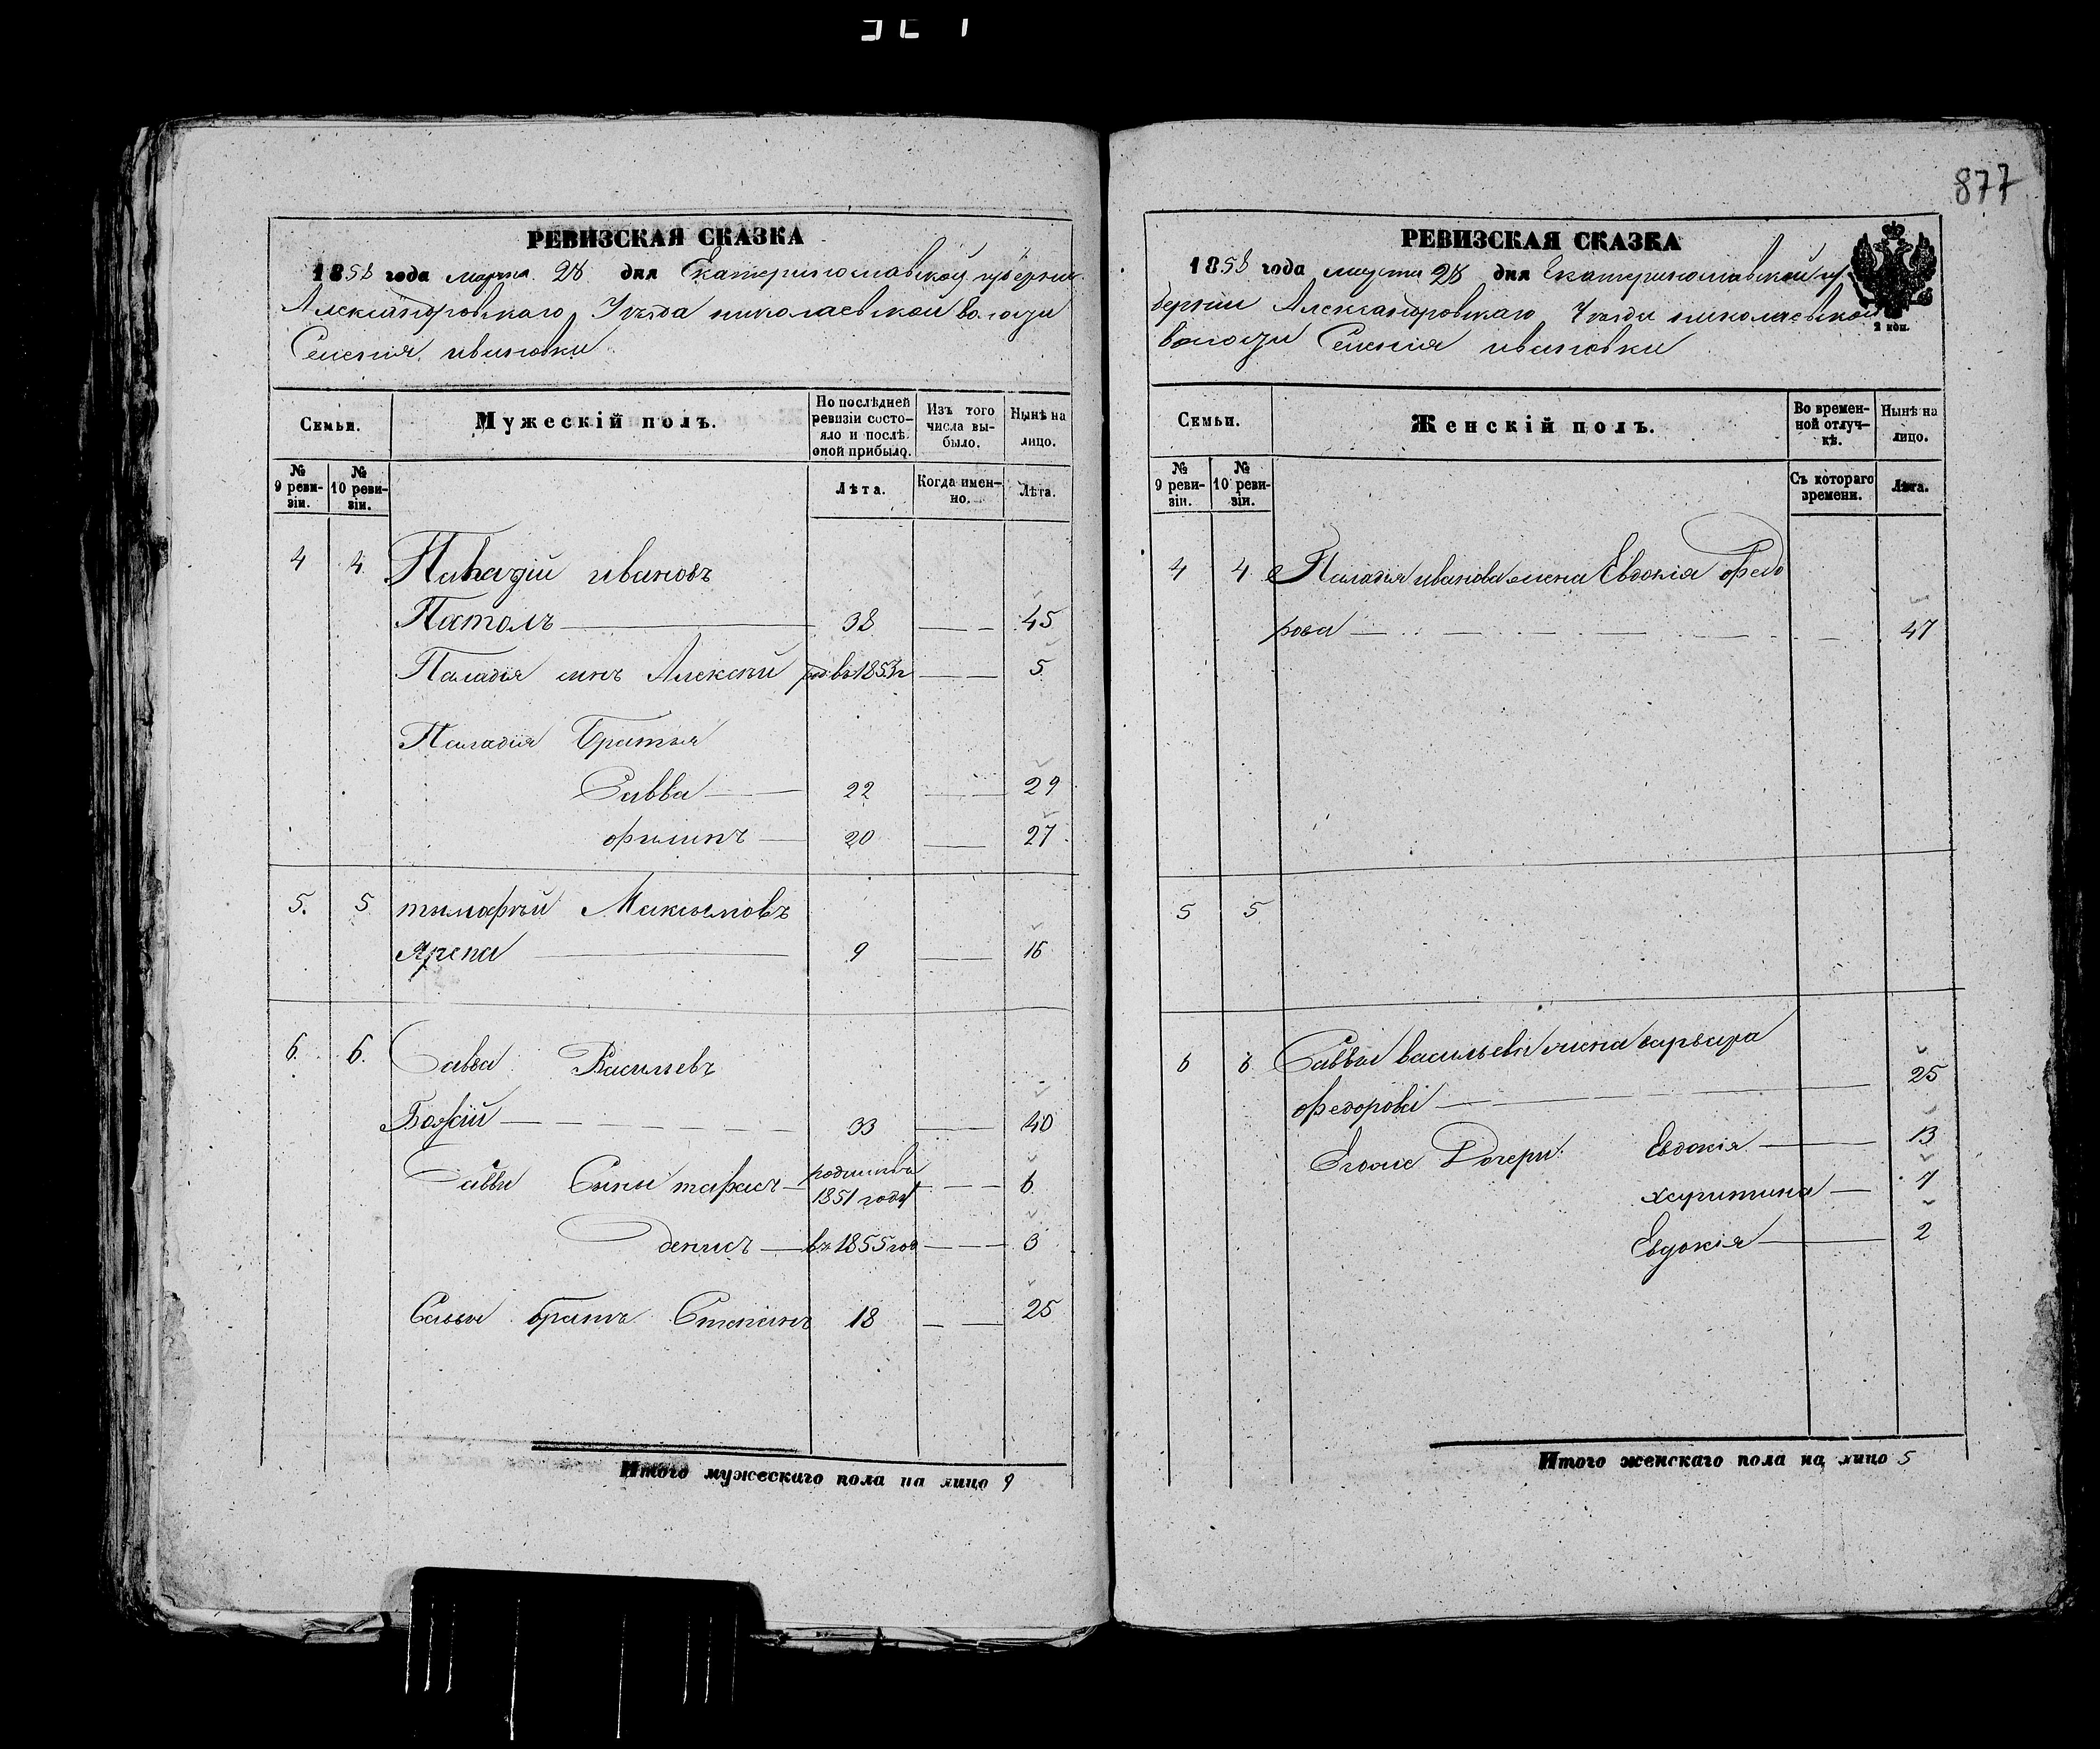 877
РЕВИЗСКАЯ СКАЗКА
1858 года марта 28 дня Екатеринославской губернии
Александровскаго Уезда николаевской волости
Селения ивановки
Семьи.
Мужескій полъ.
По послѣдней ревизіи состояло и послѣ оной прибыло.
Изъ того числа выбыло.
Нынѣ на лицо.
№ 9 ревизіи.
№ 10 ревизіи.
Лѣта.
Когда именно.
Лѣта.
4 4 ивановъ
Патолъ 38 45
Паладія синъ Алексѣй род. въ 1853 г 5
Паладія Братья
Савва 22 29
филипъ 20 27
5. 5 тимофѣй Максимовъ
9 16
6. 6. Савва Василевъ
Божій 33 40
Саввы Сыны тарасъ родился въ 1851 году 6
денисъ въ 1855 год 3
Саввы братъ Степанъ 18 25
Итого мужескаго пола на лицо 9
РЕВИЗСКАЯ СКАЗКА
1858 года марта 28 дня Екатеринославской гу
берніи Александровскаго Уезда николаевской
волости Селенія ивановки
2 коп.
Семьи.
Женскій полъ.
Во временной отлучкѣ.
Нынѣ на лицо.
№ 9 ревизіи.
№ 10 ревизіи.
Съ котораго времени.
Лѣта.
4 4 Паладія иванова жена Евдокія Федо
рова 47
5 5
6 6 Саввы васильева жена варвара
федорова 25
Егоже Дочери: Евдокія 13
харитина 7
Евдокія 2
Итого женскаго пола на лицо 5